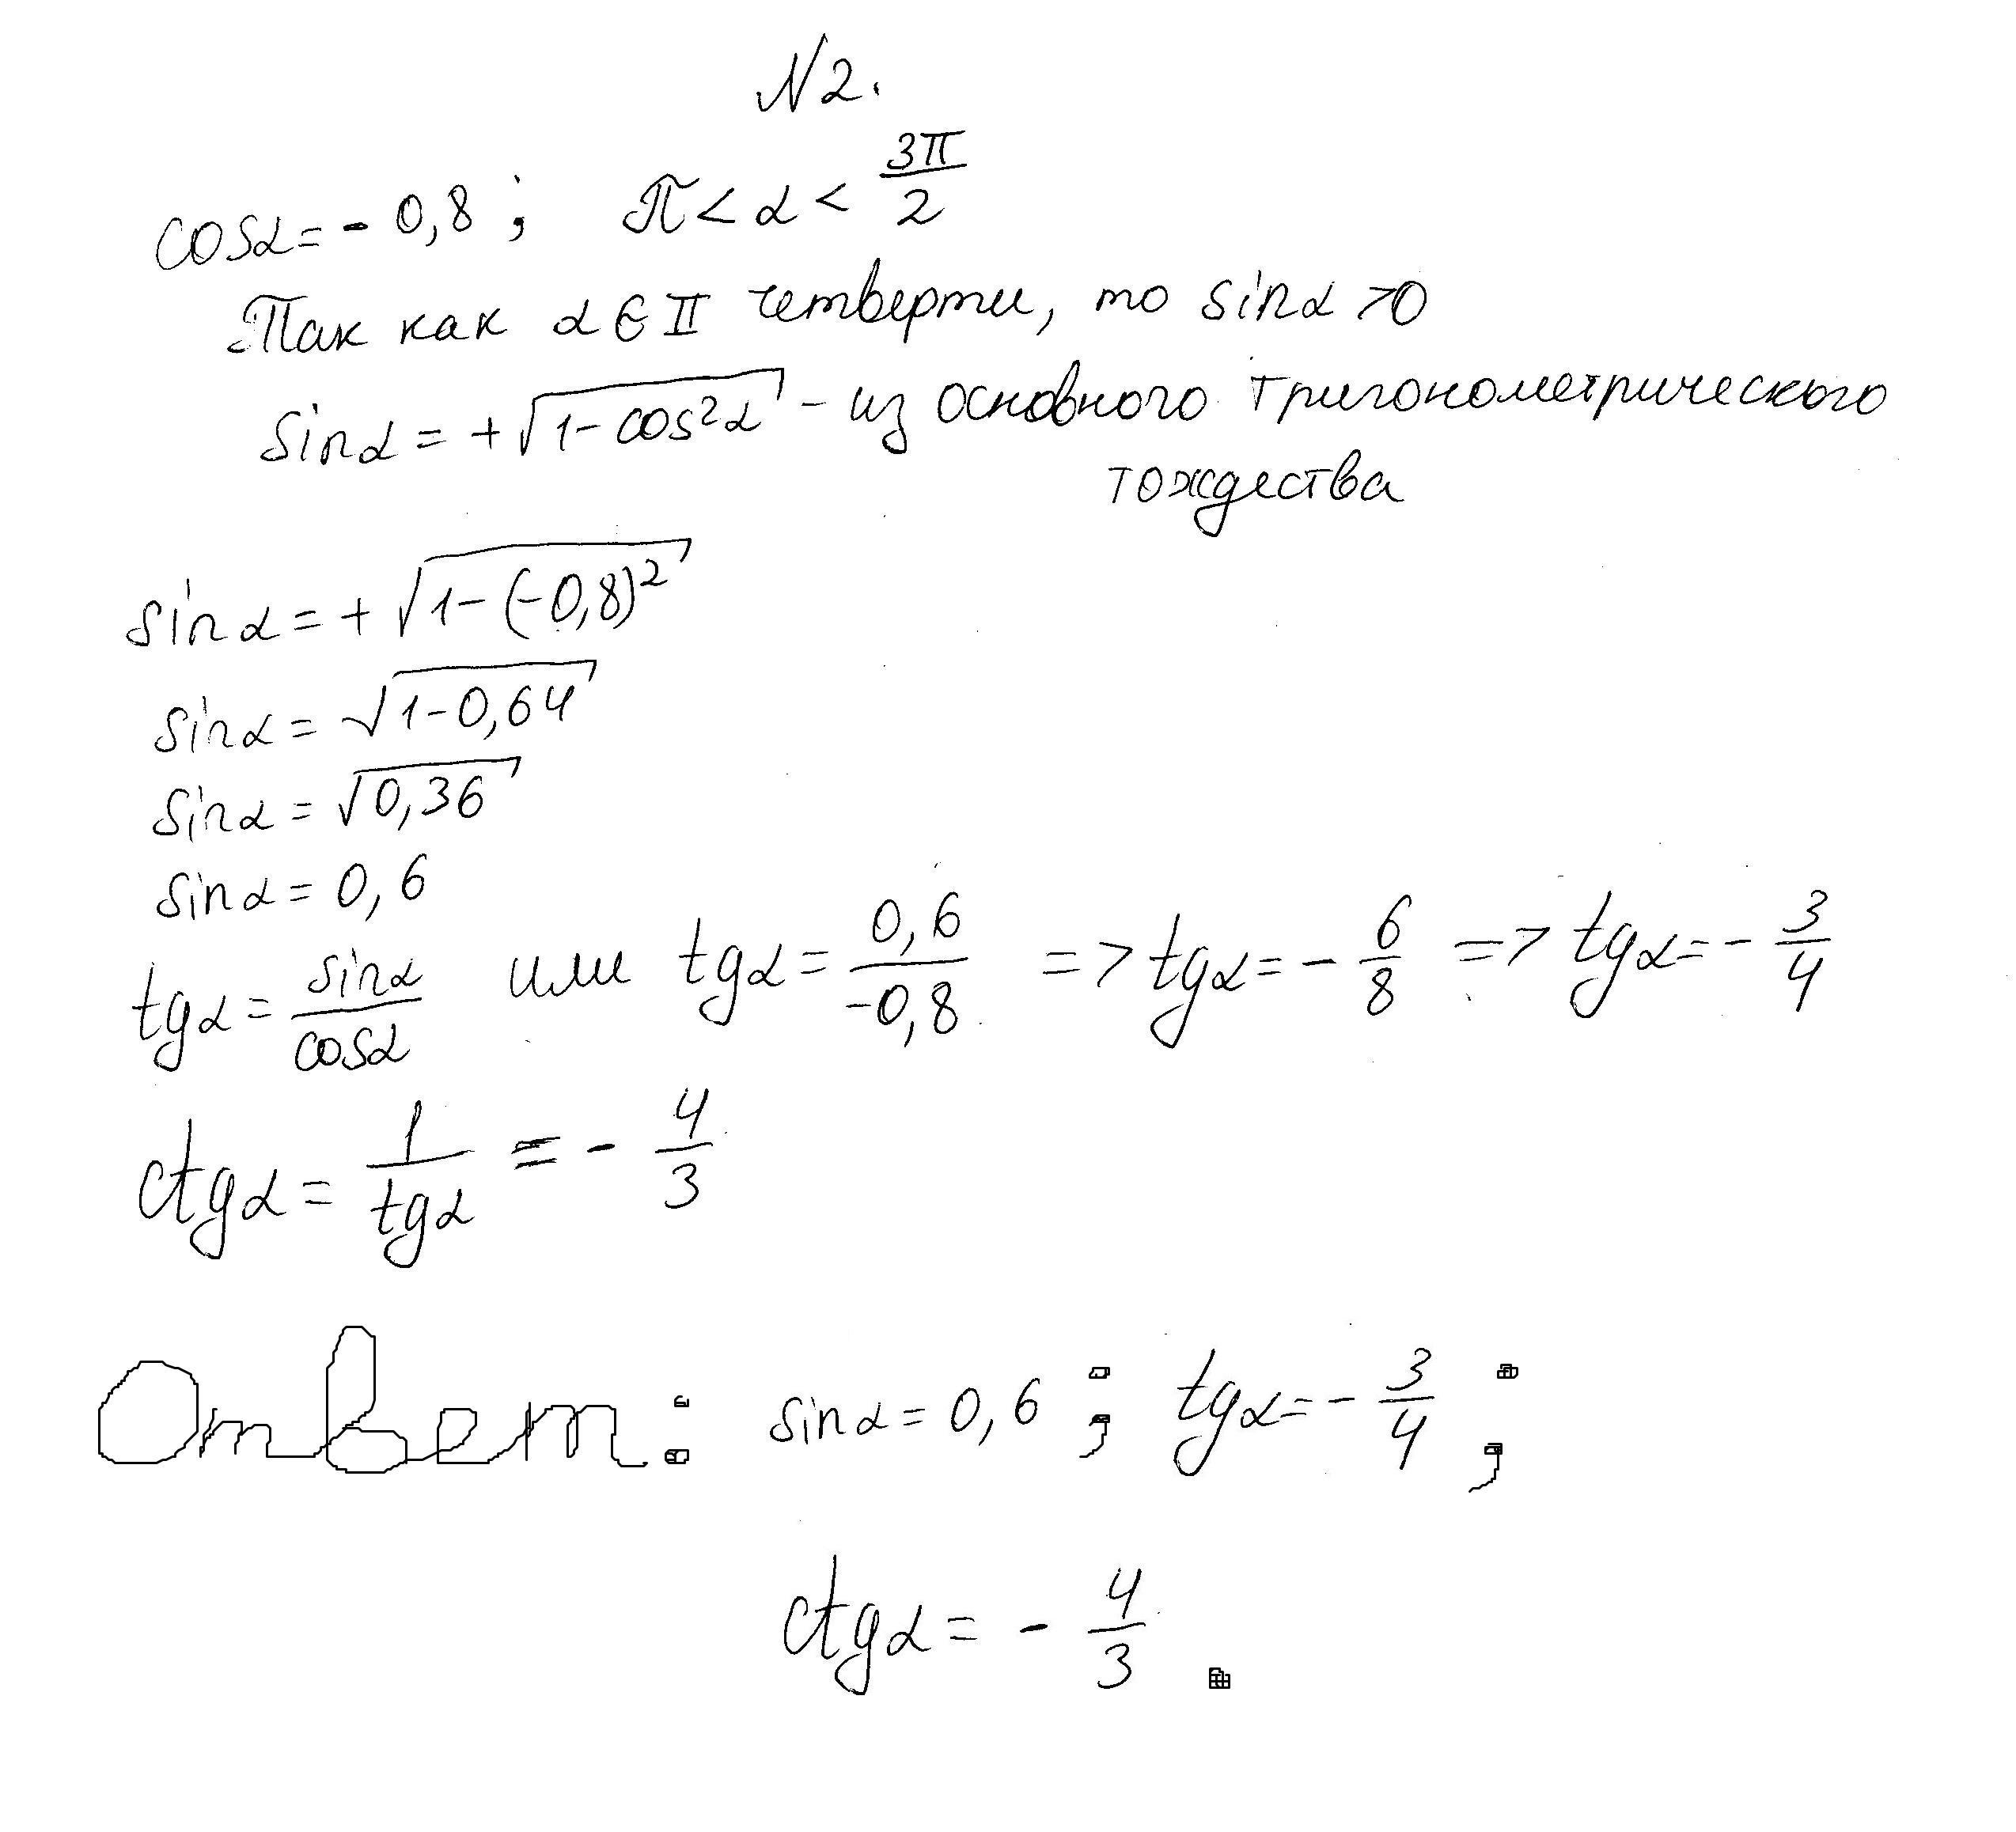 N2.
cosα = - 0,8 ; π < α < 3π/2
Так как α ∈ II четверти, то sinα > 0
sinα = + √(1 - cos²α) - из основного тригонометрического
тождества
sinα = + √(1 - (-0,8)²)
sinα = √(1 - 0,64)
sinα = √0,36
sinα = 0,6
tgα = sinα/cosα или tgα = 0,6/-0,8 => tgα = - 6/8 => tgα = - 3/4
ctgα = 1/tgα = - 4/3
Ответ: sinα = 0,6 ; tgα = - 3/4 ;
ctgα = - 4/3 .